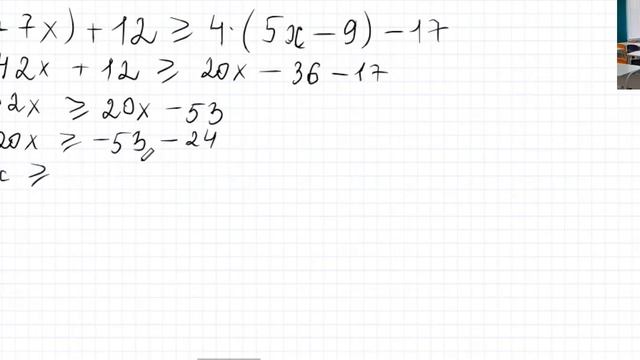 7x) + 12 ≥ 4·(5x − 9) − 17
42x + 12 ≥ 20x − 36 − 17
2x ≥ 20x − 53
20x ≥ −53 − 24
x ≥